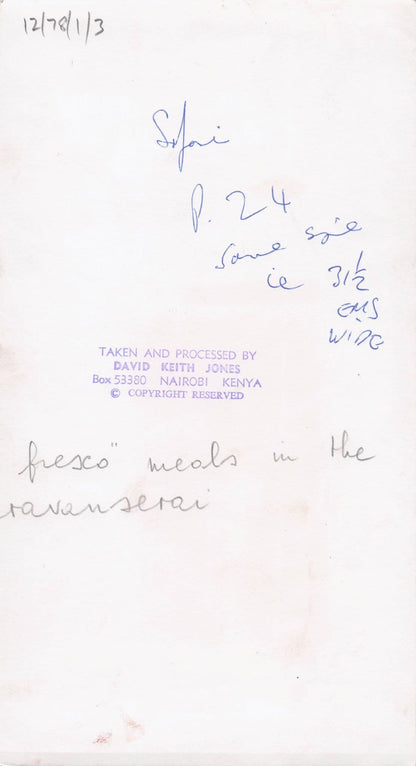 12/78/1/3
Safari
P. 24
same size
ie 31½
EMS
WIDE
TAKEN AND PROCESSED BY
DAVID KEITH JONES
Box 53380 NAIROBI KENYA
© COPYRIGHT RESERVED
fresco" meals in the
ravanserai